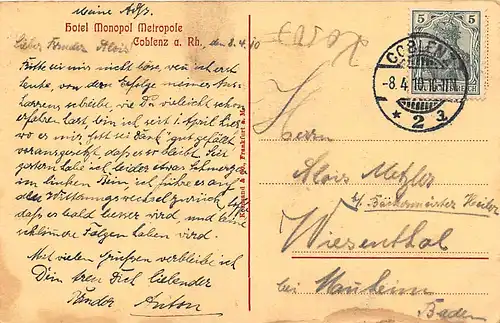 meine Adr.
Hotel Monopol Metropole
Coblenz a. Rh., den 8.4.10
Lieber Bruder Alois
Bitte sei mir nicht böse, wenn ich erst
heute, von dem Erfolge meines
schreibe, wie Du vielleicht schon
erfahren hast bin ich seit 1. April hier
wo es mir Gott sei Dank gut gefällt
vorausgesetzt daß es so bleibt. Seit
gestern habe ich leider etwas Schmerzen
im linken Bein ich führe es auf
den Witterungswechsel zurück,
daß es bald besser wird, und keine
schlimme Folgen haben wird.
Mit vielen Grüssen verbleibe ich
Dein treu Dich liebender
Bruder Anton
Frankfurt a. M.
5
COBLENZ
-8.4.10.
* 2 3.
Herrn
Alois Metzler
b/ Bäckermeister
Wiesenthal
bei
Baden